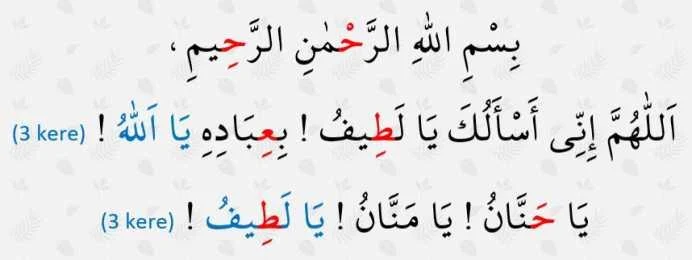 بِسْمِ اللهِ الرَّحْمٰنِ الرَّحِيمِ ،
اَللّٰهُمَّ إِنِّى أَسْأَلُكَ يَا لَطِيفُ ! بِعِبَادِهِ يَا اَللّٰهُ ! (3 kere)
يَا حَنَّانُ ! يَا مَنَّانُ ! يَا لَطِيفُ ! (3 kere)